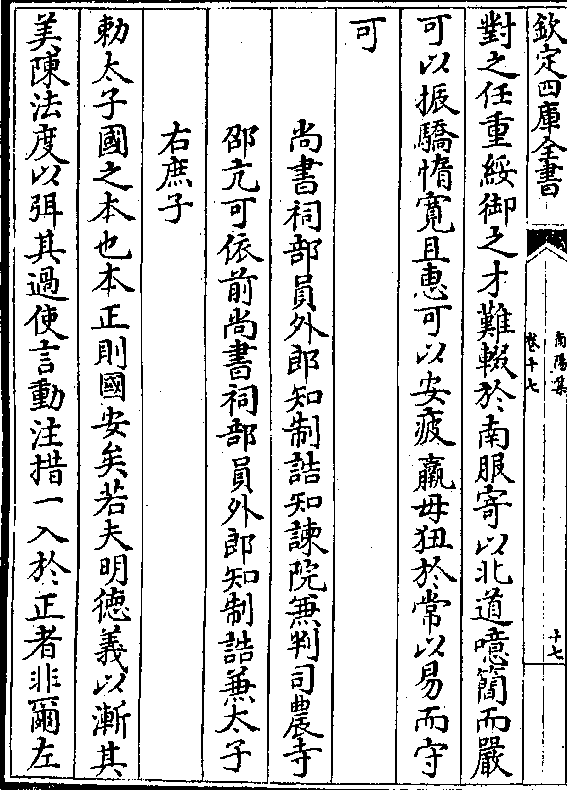 欽定四庫全書
南陽集
卷十七
十七
對之任重綏御之才難輟於南服寄以北道噫簡而嚴
可以振驕惰寬且惠可以安疲羸毋狃於常以易而守
可
尚書祠部員外郎知制誥知諫院兼判司農寺
邵亢可依前尚書祠部員外郎知制誥兼太子
右庶子
勅太子國之本也本正則國安矣若夫明德義以漸其
美陳法度以弭其過使言動注措一入於正者非爾左